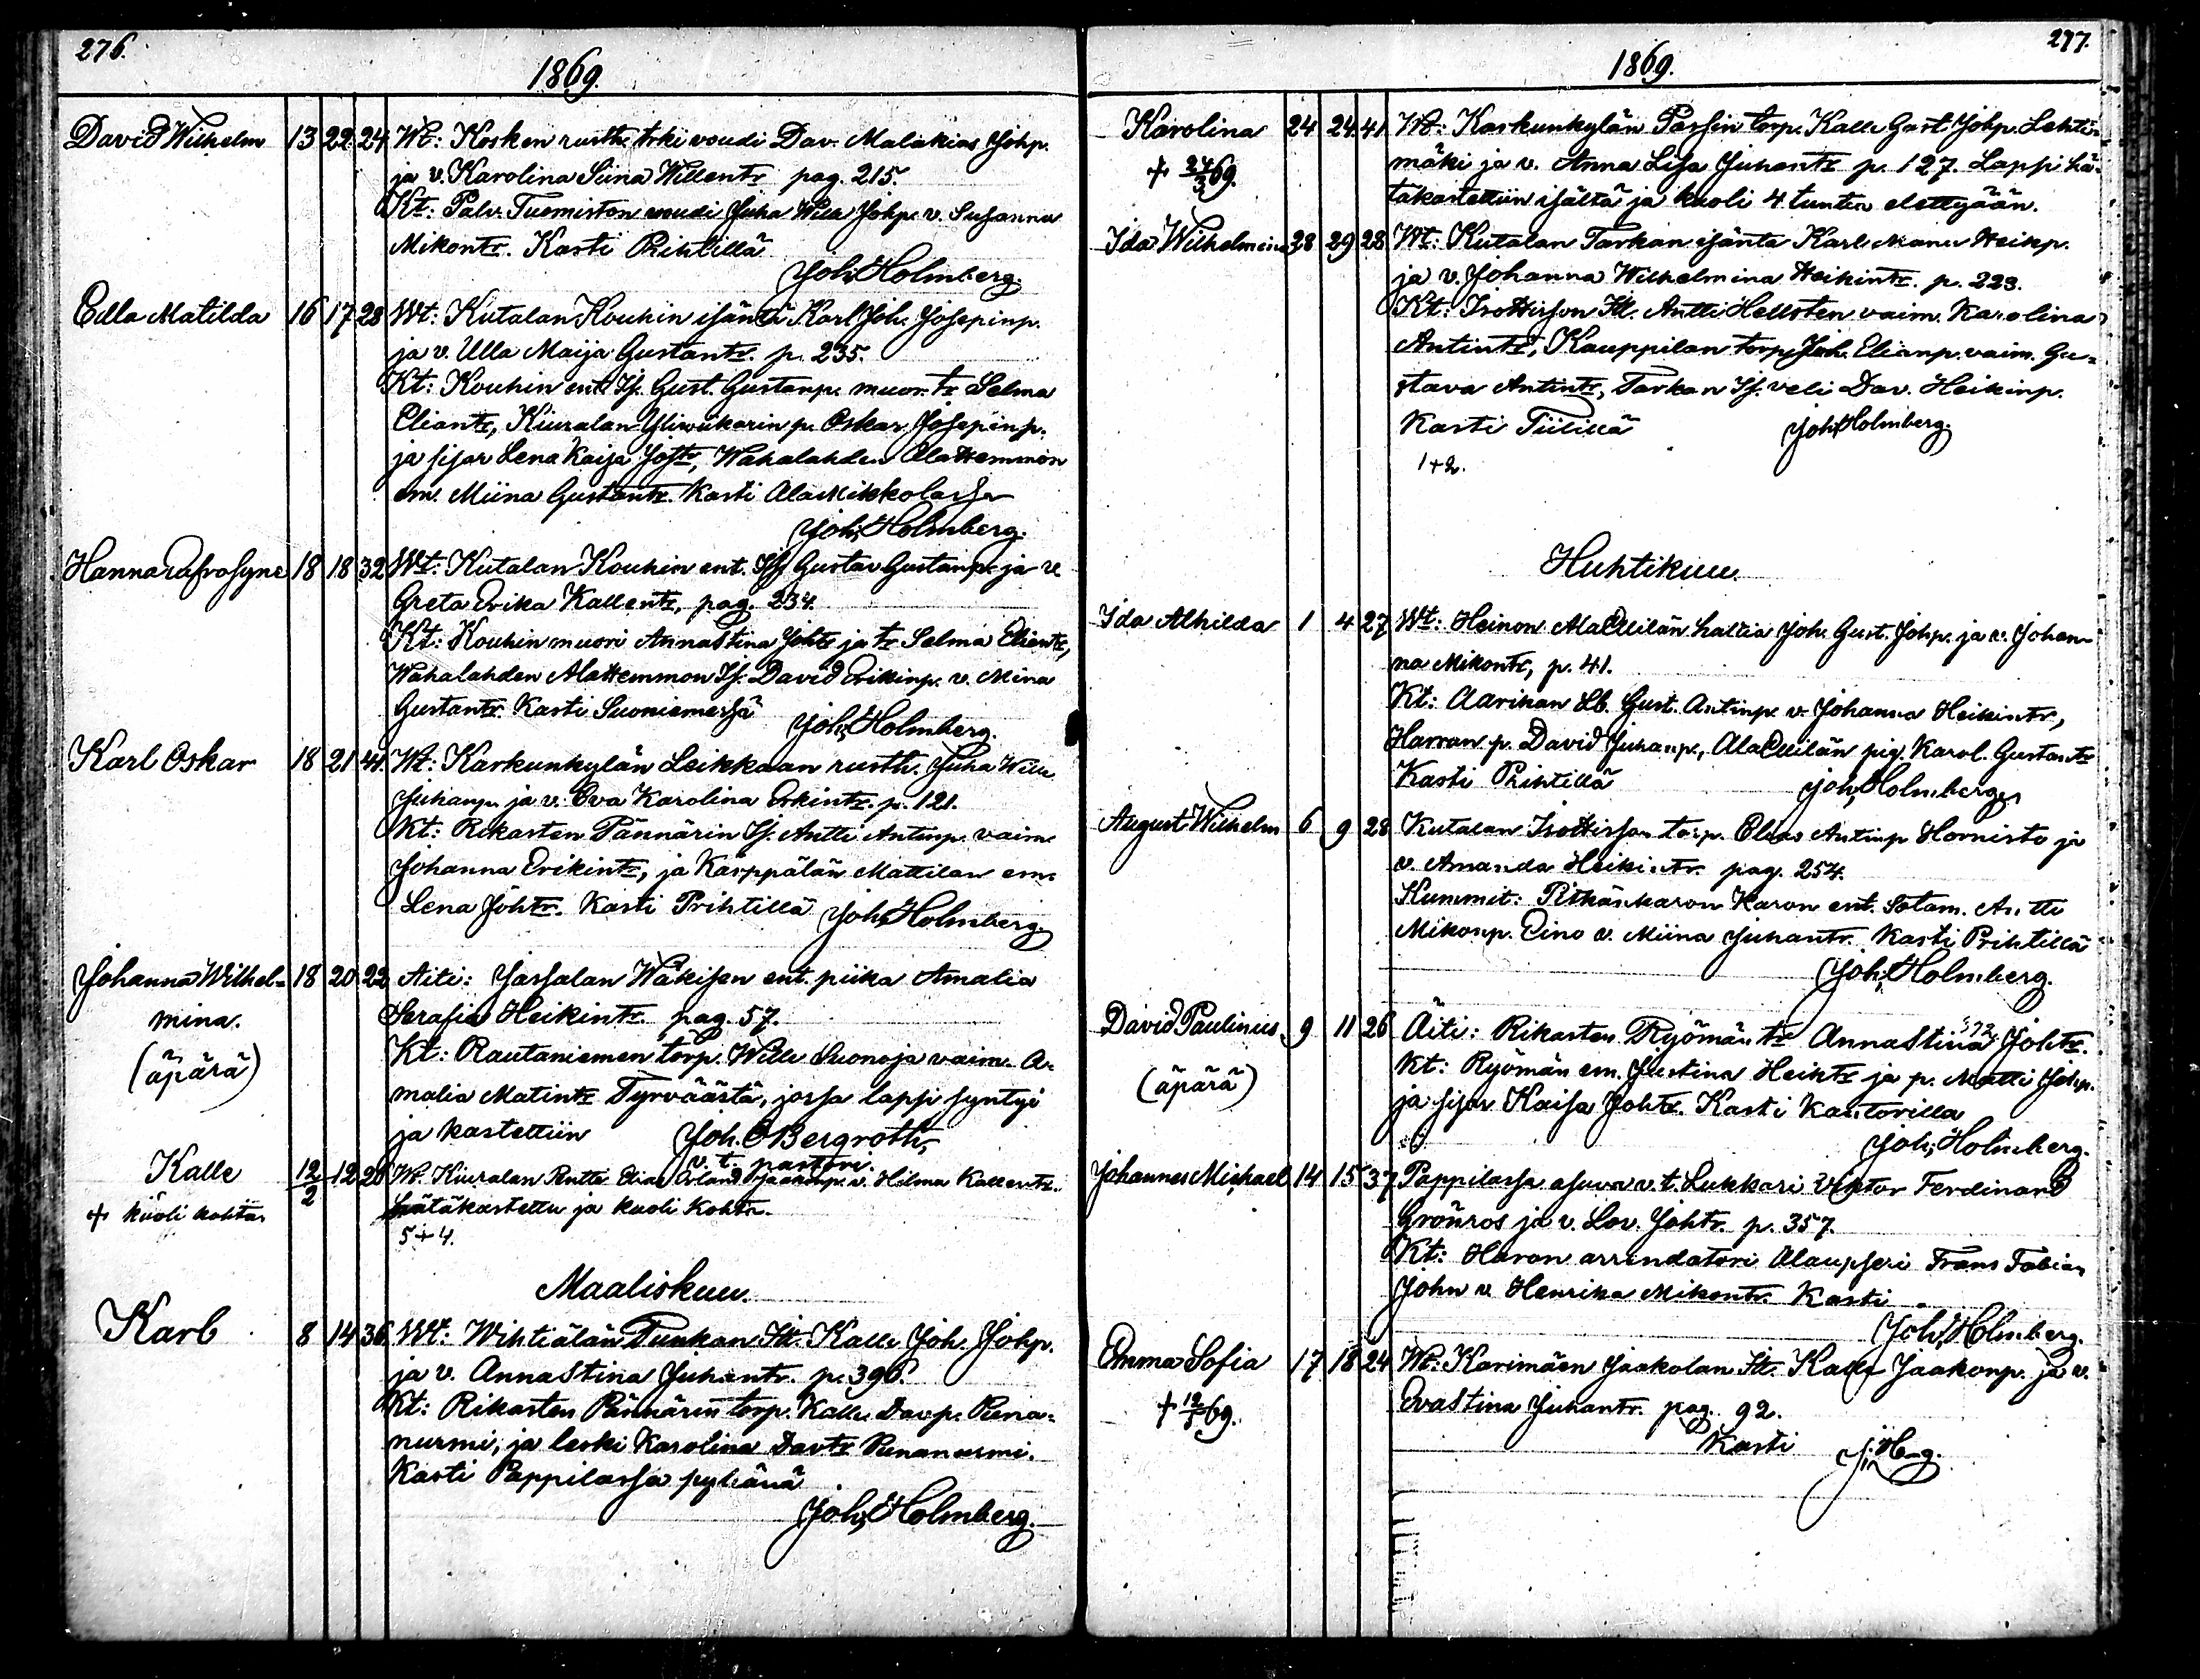 276.
1869.
David Wilhelm 13 22 24 Wt: Kosken rusth. torki voudi Dav. Malakias Johp.
ja v. Karolina Siina Willentr. pag. 215.
Kt: Palv. Tuomiston voudi Juha Wille Johp. v. Susanna
Mikontr. Kasti Prihtillä
Joh. Holmberg.
Edla Matilda 16 17 28 Wt: Kutalan Kouhin isäntä Karl Joh. Josepinp.
ja v. Ulla Maija Gustantr. p. 235.
Kt: Kouhin ent. Is. Gust. Gustanp. muor. tr Selma
Eliantr, Kiuralan Yliwiikarin p. Oskar Josepinp.
ja sisar Lena Kaisa Jostr, Wahalahden AlaHemmon
em. Miina Gustantr. Kasti AlaMikkolassa
Joh. Holmberg.
Hanna Eufrosyne 18 18 32 Wt: Kutalan Kouhin ent. Is Gustav Gustanp. ja v.
Greta Erika Kallentr, pag. 234.
Kt: Kouhin muori AnnaStina Johtr ja tr Selma Eliantr,
Wahalahden AlaHemmon Is. David Erikinp. v. Mina
Gustantr. Kasti Suoniemessä
Joh. Holmberg.
Karl Oskar 18 21 41. Wt: Karkunkylän Leikkaan rusth. Juha Wille
Juhanp. ja v. Eva Karolina Erkintr. p. 121.
Kt: Rikasten Pännärin Is. Antti Antinp. vaim.
Johanna Erikintr, ja Kärppälän Mattilan em.
Lena Johtr. Kasti Prihtillä Joh. Holmberg.
Johanna Wilhel= 18 20 22 Äiti: Jassalan Wäkisen ent. piika Amalia
mina. Serafia Heikintr. pag. 57.
(äpärä) Kt: Rautaniemen torp. Wille Suonoja vaim. A=
malia Matintr Tyrväästä, jossa lapsi syntyi
ja kastettiin Joh. E Bergroth,
v. t. pastori.
Kalle 12/2 12 26 Wt. Kiuralan Rutta Elias Erland Jaakonp. v. Hilma Kallentr.
+ kuoli kohta. Hätäkastettu ja kuoli kohta.
5+4.
Maaliskuu.
Karl 8 14 36. Wt: Wihtiälän Tuukan Itt. Kalle Joh. Johp.
ja v. AnnaStina Juhantr. p. 396.
Kt: Rikasten Pännärin torp. Kalle Davp. Puna=
nurmi, ja leski Karolina Davtr Punanurmi.
Kasti Pappilassa pyhänä
Joh. Holmberg.
277.
1869.
Karolina 24 24 41 Wt: Karkunkylän Passin torp. Kalle Gust. Johp. Lehti=
+ 24/3 69. mäki ja v. Anna Lisa Juhantr p. 127. Lapsi hä=
täkastettiin isältä ja kuoli 4 tuntia elettyään.
Ida Wilhelmina 28 29 28 Wt: Kutalan Tarkan isäntä Karl Manu Heikp.
ja v. Johanna Wilhelmina Heikintr. p. 223.
Kt: IsoHirson Itt. Antti Hellsten vaim. Karolina
Antintr, Kauppilan torp. Joh. Elianp. vaim. Gu=
stava Antintr, Tarkan Is. veli Dav. Heikinp.
Kasti Tiilillä Joh. Holmberg.
1+2.
Huhtikuu.
Ida Alhilda 1 4 27 Wt: Heinon AlaEllilän haltia Joh. Gust. Johp. ja v. Johan=
na Mikontr, p. 41.
Kt: Aarikan Lb. Gust. Antinp. v. Johanna Heikintr,
Harran p. David Juhanp., AlaEllilän pig. Karol. Gustantr
Kasti Prihtillä Joh. Holmberg
August Wilhelm 6 9 28 Kutalan IsoHirson torp. Elias Antinp Hornisto ja
v. Amanda Heikintr. pag. 254.
Kummit: Pitkänkaron Karon ent. Sotam. Antti
Mikonp. Eino v. Miina Juhantr. Kasti Prihtillä
Joh. Holmberg.
David Paulinus 9 11 26 Äiti: Rikasten Ryömän tr AnnaStina Johtr.
(äpärä) Kt: Ryömän em. Justina Heiktr ja p. Matti Johp.
ja sisar Kaisa Johtr. Kasti Kanttorilla
Joh. Holmberg.
Johannes Michael 14 15 37 Pappilassa asuva v. t. Lukkari Viktor Ferdinand
Grönros ja v. Lov. Johtr. p. 357.
Kt: Haron arrendatori Alaupseri Frans Fabian
John v. Henrika Mikontr. Kasti
Joh. Holmberg.
Emma Sofia 17 18 24 Wt: Karimäen Jaakolan Itt. Kalle Jaakonp. ja v.
+ 12/5 69. EvaStina Juhantr. pag. 92.
Kasti J. Hbrg.